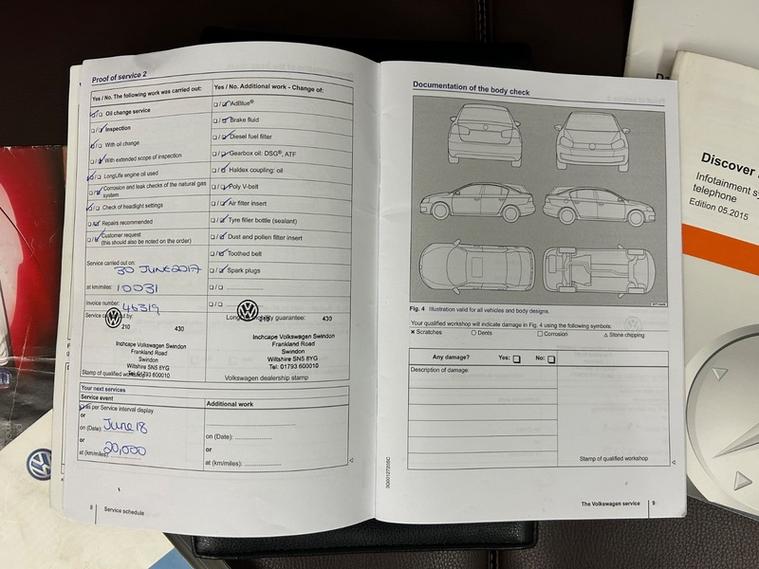 Proof of service 2
Yes / No. The following work was carried out:
Oil change service
Inspection
With oil change
With extended scope of inspection
LongLife engine oil used
Corrosion and leak checks of the natural gas
system
Check of headlight settings
Repairs recommended
Customer request
(this should also be noted on the order)
Service carried out on:
30 JUNE 2017
at km/miles: 10031
Invoice number: 46319
210 430
Inchcape Volkswagen Swindon
Frankland Road
Swindon
Wiltshire SN5 8YG
Tel: 01793 600010
Stamp of qualified
Yes / No. Additional work - Change of:
AdBlue®
Brake fluid
Diesel fuel filter
Gearbox oil: DSG®, ATF
Haldex coupling: oil
Poly V-belt
Air filter insert
Tyre filler bottle (sealant)
Dust and pollen filter insert
Toothed belt
Spark plugs
guarantee: 430
Inchcape Volkswagen Swindon
Frankland Road
Swindon
Wiltshire SN5 8YG
Tel: 01793 600010
Volkswagen dealership stamp
Your next services
Service event
as per Service interval display
or
on (Date): June 18
or
at (km/miles): 20,000
Additional work
on (Date):
or
at (km/miles):
8 Service schedule
Documentation of the body check
Fig. 4 Illustration valid for all vehicles and body designs.
Your qualified workshop will indicate damage in Fig. 4 using the following symbols:
× Scratches O Dents □ Corrosion △ Stone chipping
Any damage? Yes: No:
Description of damage:
Stamp of qualified workshop
The Volkswagen service 9
Discover
Infotainment
telephone
Edition 05.2015